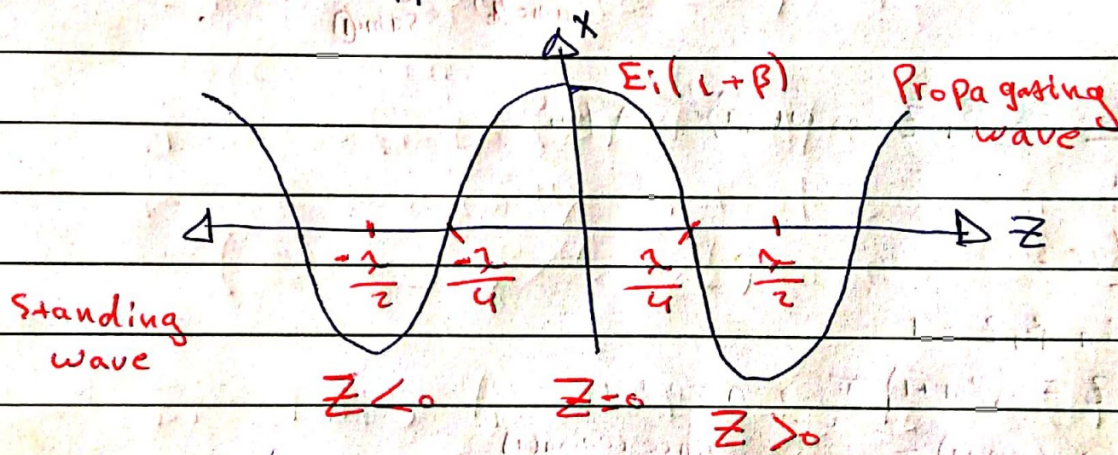 X
Ei(1+β)
Propagating
wave
Z
-λ/2
-λ/4
λ/4
λ/2
Standing
wave
Z<0
Z=0
Z>0